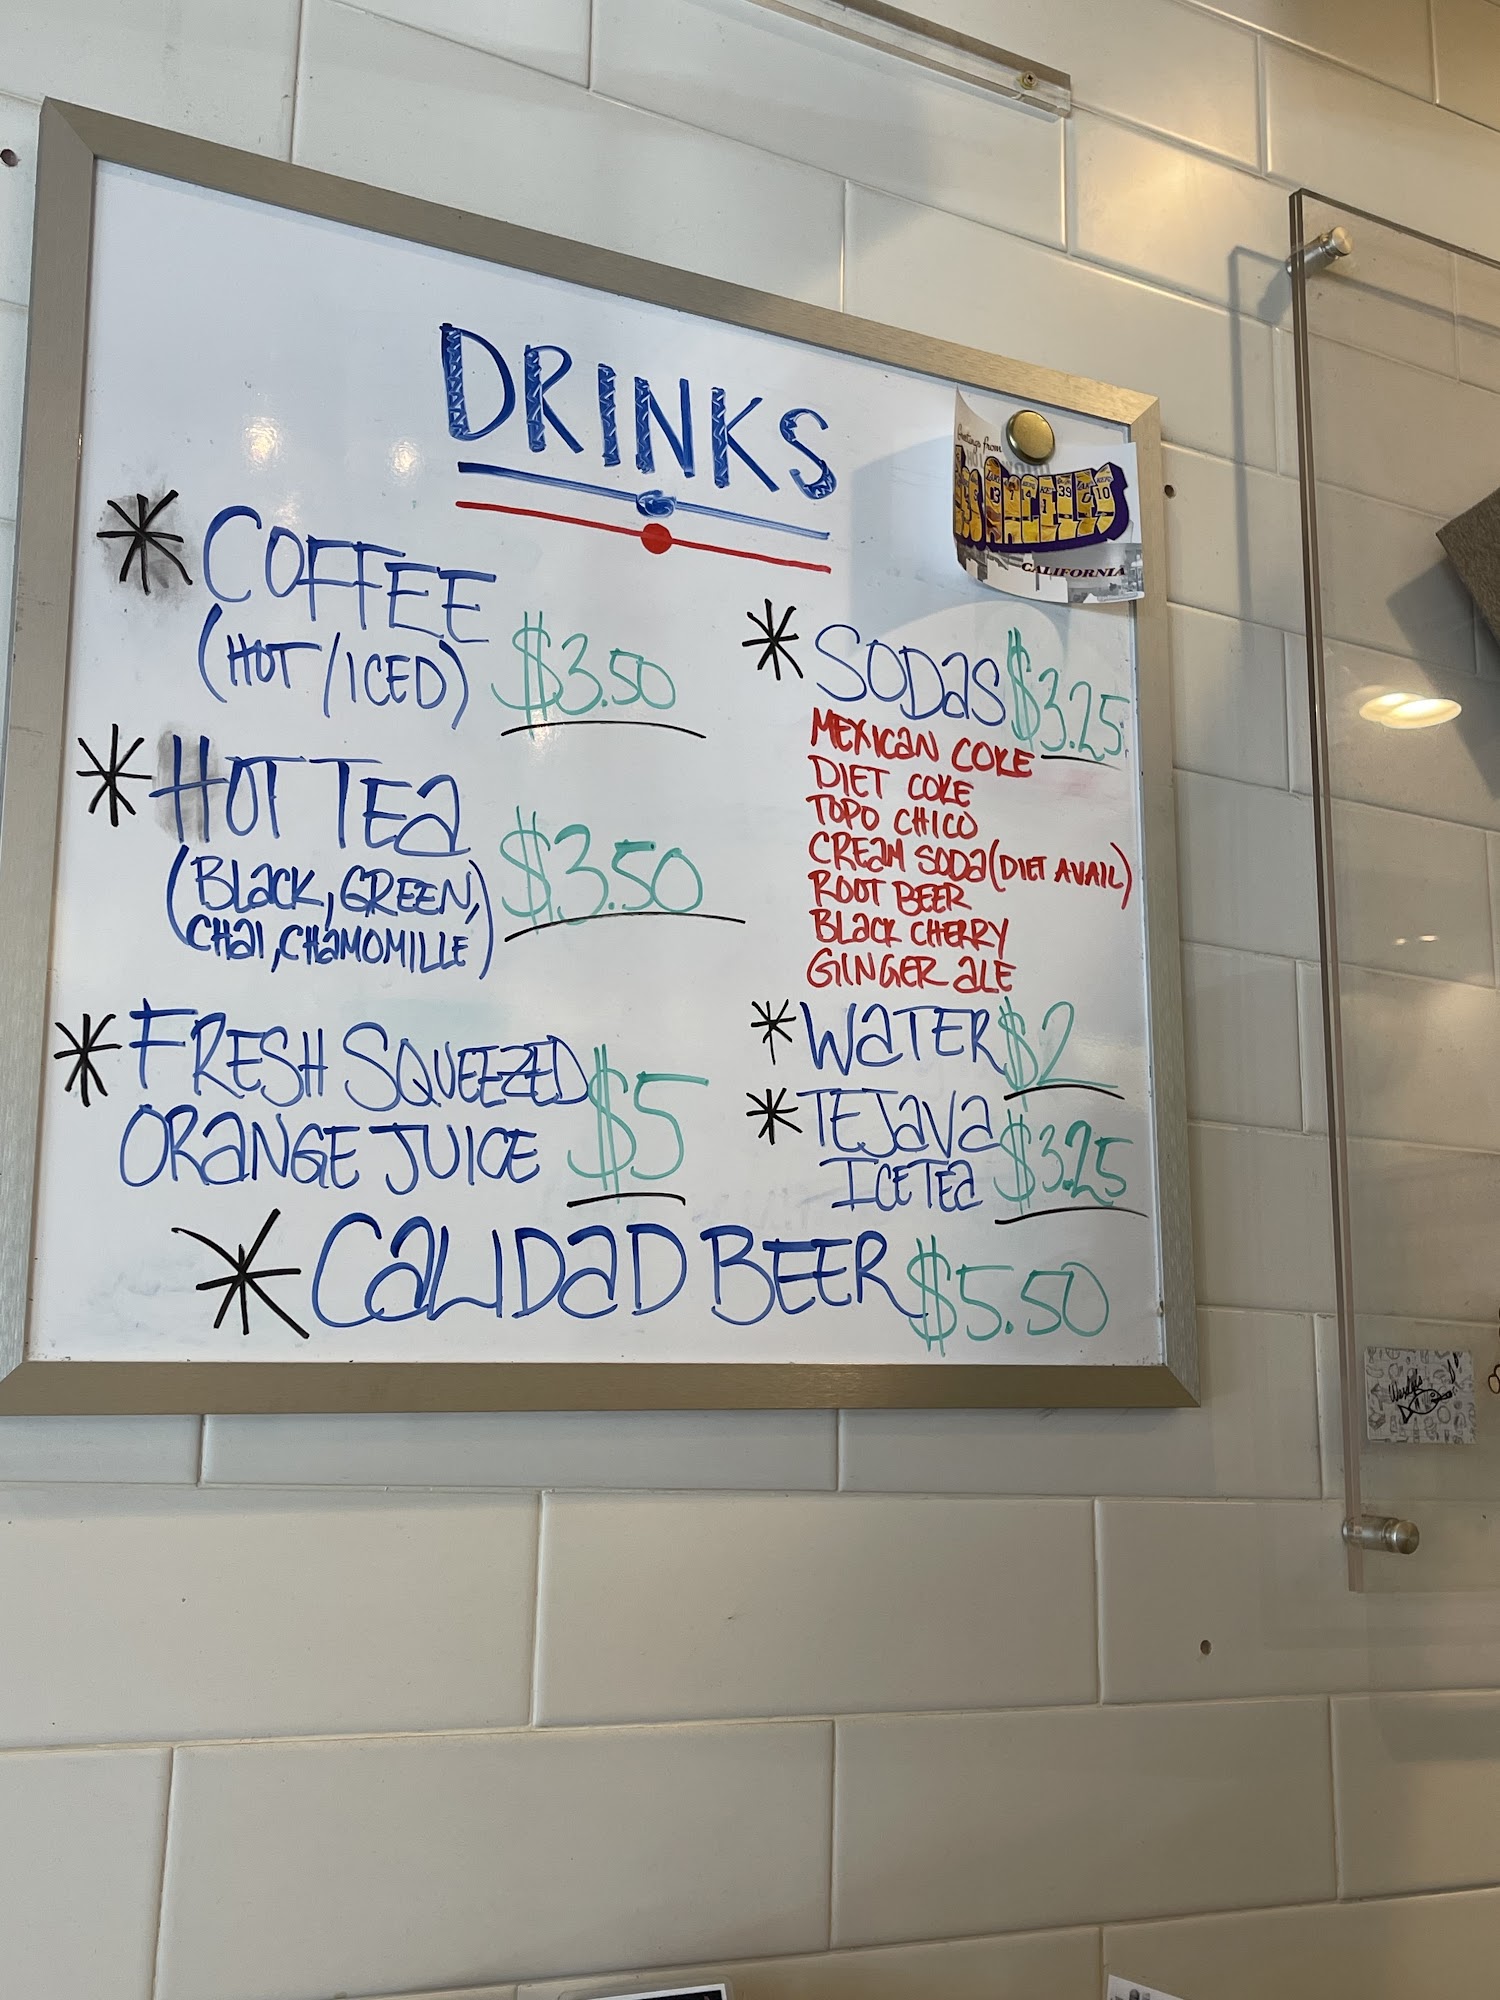 DRINKS
COFFEE
(HOT/ICED) $3.50
HOT TEA
(BLACK, GREEN, $3.50
CHAI, CHAMOMILLE)
FRESH SQUEEZED
ORANGE JUICE $5
SODAS $3.25
MEXICAN COKE
DIET COKE
TOPO CHICO
CREAM SODA (DIET AVAIL)
ROOT BEER
BLACK CHERRY
GINGER ALE
WATER $2
TEJAVA
ICE TEA $3.25
CALIDAD BEER $5.50
Greetings from
LOS ANGELES
CALIFORNIA